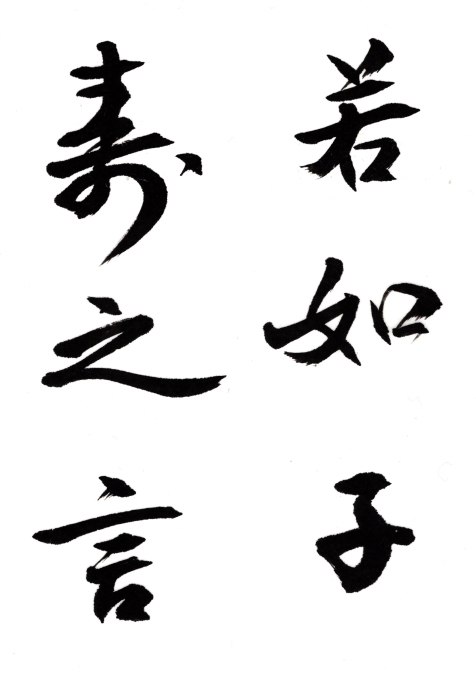 若如子
寿之言